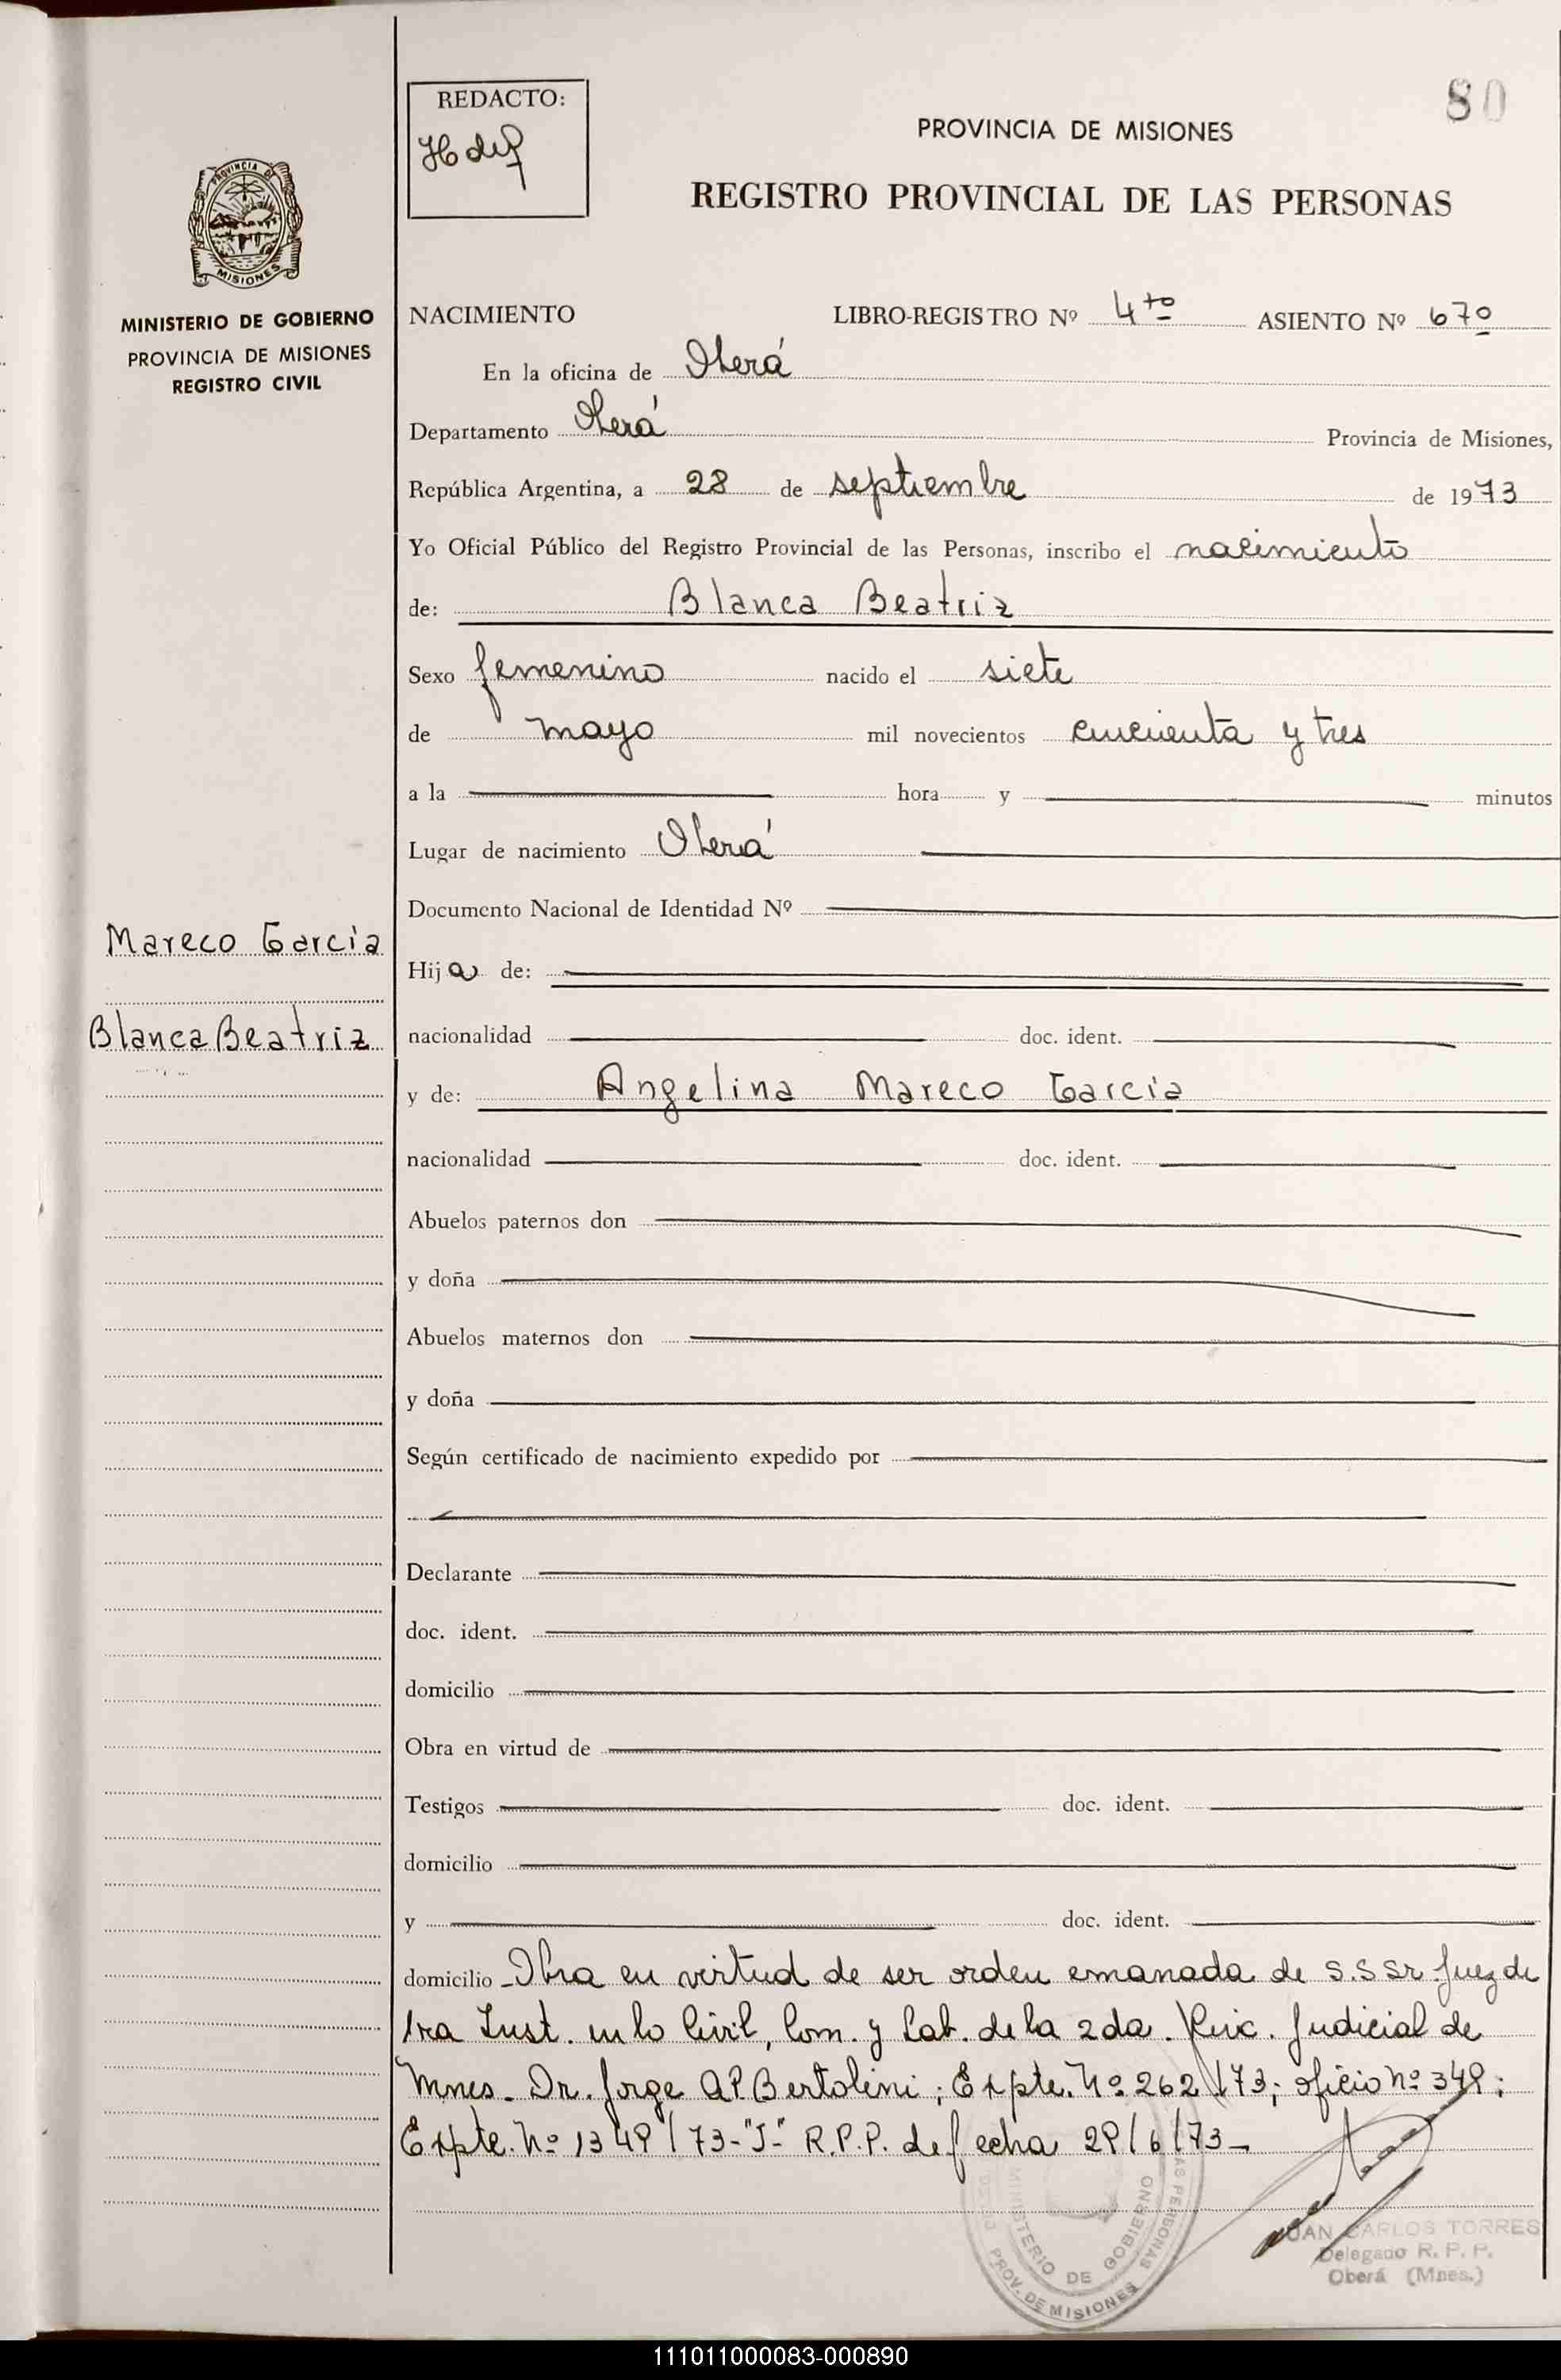 80
REDACTO:
PROVINCIA DE MISIONES
REGISTRO PROVINCIAL DE LAS PERSONAS
PROVINCIA DE
MISIONES
MINISTERIO DE GOBIERNO
PROVINCIA DE MISIONES
REGISTRO CIVIL
NACIMIENTO LIBRO-REGISTRO Nº 4to ASIENTO Nº 67º
En la oficina de Oberá
Departamento Oberá Provincia de Misiones,
República Argentina, a 28 de septiembre de 1973
Yo Oficial Público del Registro Provincial de las Personas, inscribo el nacimiento
de: Blanca Beatriz
Sexo femenino nacido el siete
de mayo mil novecientos cincuenta y tres
a la hora y minutos
Lugar de nacimiento Oberá
Documento Nacional de Identidad Nº
Mareco Garcia
Hija de:
Blanca Beatriz
nacionalidad doc. ident.
y de: Angelina Mareco Garcia
nacionalidad doc. ident.
Abuelos paternos don
y doña
Abuelos maternos don
y doña
Según certificado de nacimiento expedido por
Declarante
doc. ident.
domicilio
Obra en virtud de
Testigos doc. ident.
domicilio
y doc. ident.
domicilio Obra en virtud de ser orden emanada de S.S Sr. Juez de
1ra Inst. en lo Civil, Com. y Lab. de la 2da. Judicial de
Mnes. Dr. Jorge Bertolini; Expte. Nº 262/73; oficio nº 349;
Expte. Nº 1349/73-"J"- R.P.P. de fecha 29/6/73-
MINISTERIO DE GOBIERNO
PROV. DE MISIONES
LAS PERSONAS
JUAN CARLOS TORRES
Delegado R. P. P.
Oberá (Mnes.)
111011000083-000890